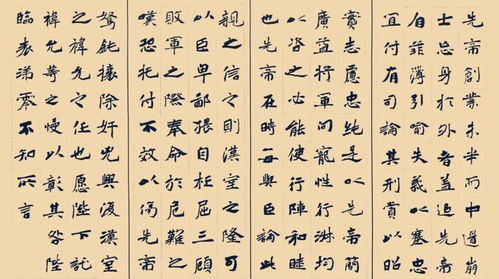 先帝創業未半而中道崩
士忘身於外者蓋追先帝
自菲薄引喻失義以塞忠
宜付有司論其刑賞以昭
實志慮忠純是以先帝簡
廣益將軍向寵性行淑均
以咨之必能使行陣和睦
也先帝在時每與臣論此
親之信之則漢室之隆可
以臣卑鄙猥自枉屈三顧
敗軍之際奉命於危難之
嘆恐托付不效以傷先帝
駑鈍攘除奸兇興復漢室
之禕允之任也願陛下託
禕允等之慢以彰其咎陛
臨表涕零不知所言